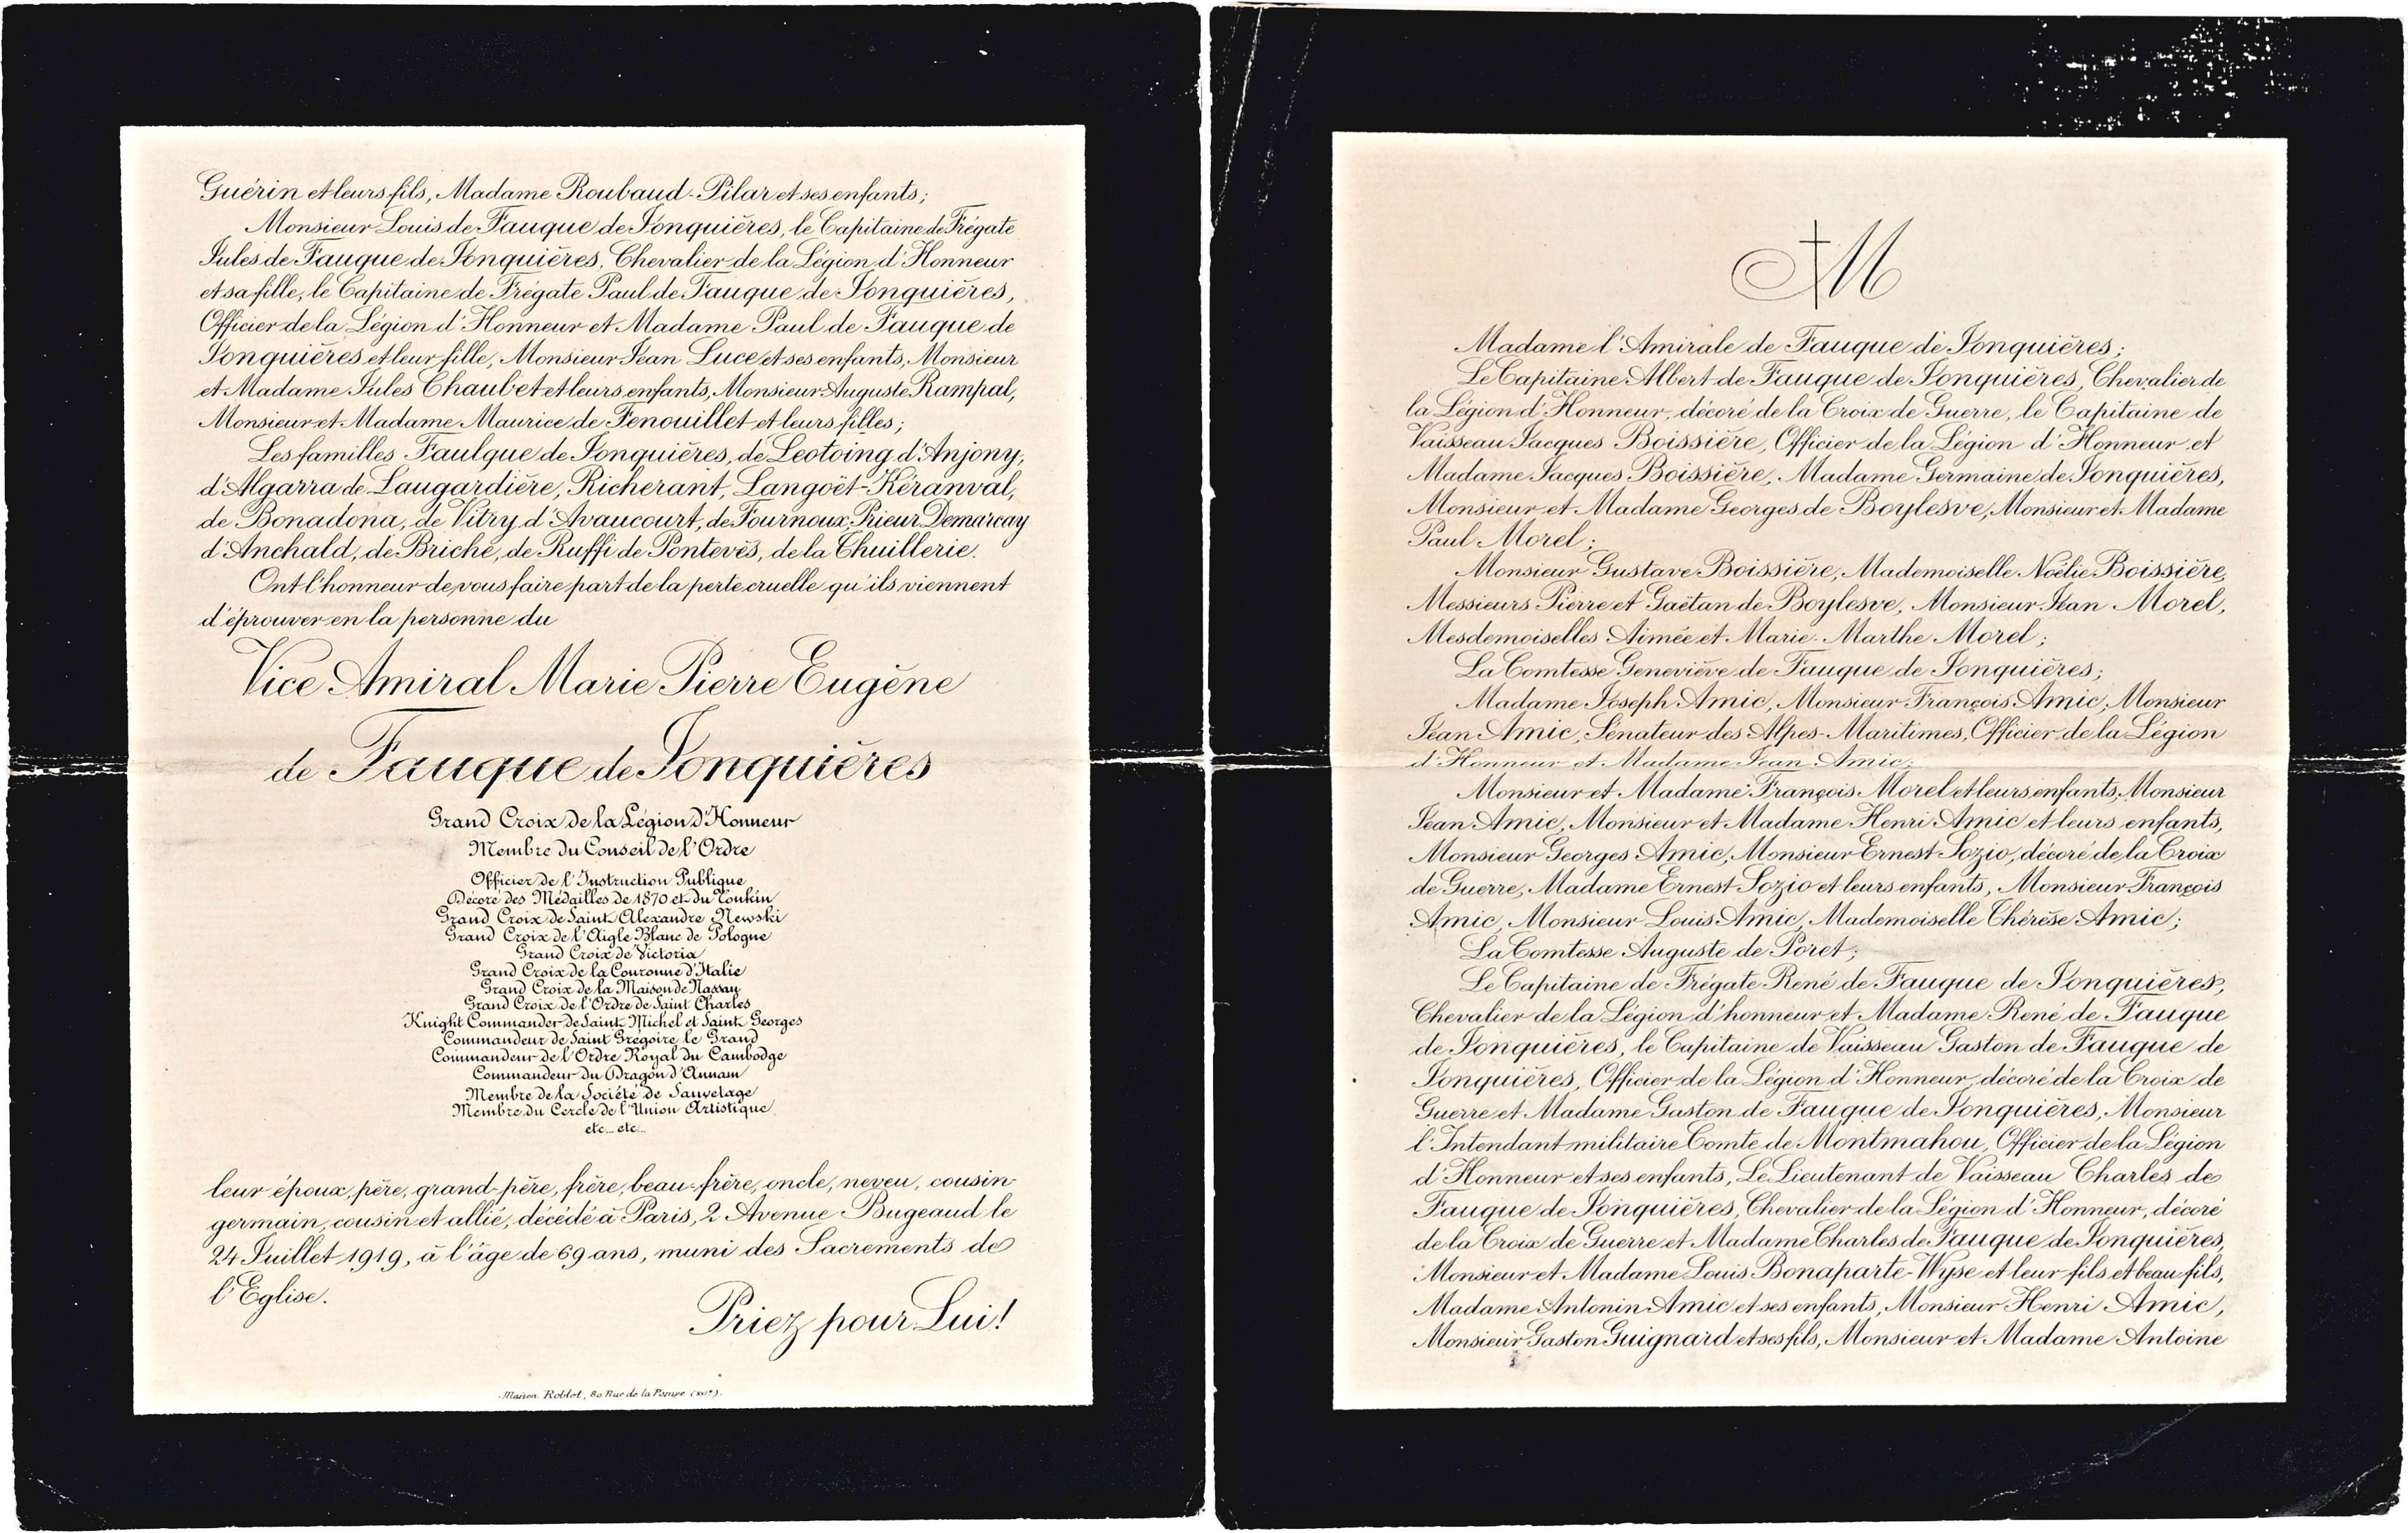 M
Madame l'Amirale de Fauque de Jonquières;
Le Capitaine Albert de Fauque de Jonquières, Chevalier de
la Légion d'Honneur, décoré de la Croix de Guerre, le Capitaine de
Vaisseau Jacques Boissière, Officier de la Légion d'Honneur et
Madame Jacques Boissière, Madame Germaine de Jonquières,
Monsieur et Madame Georges de Boylesve, Monsieur et Madame
Paul Morel;
Monsieur Gustave Boissière, Mademoiselle Noëlie Boissière,
Messieurs Pierre et Gaëtan de Boylesve, Monsieur Jean Morel,
Mesdemoiselles Aimée et Marie-Marthe Morel;
La Comtesse Geneviève de Fauque de Jonquières;
Madame Joseph Amic, Monsieur François Amic, Monsieur
Jean Amic, Sénateur des Alpes-Maritimes, Officier de la Légion
d'Honneur et Madame Jean Amic;
Monsieur et Madame François Morel et leurs enfants, Monsieur
Jean Amic, Monsieur et Madame Henri Amic et leurs enfants,
Monsieur Georges Amic, Monsieur Ernest Sozio, décoré de la Croix
de Guerre, Madame Ernest Sozio et leurs enfants, Monsieur François
Amic, Monsieur Louis Amic, Mademoiselle Thérèse Amic;
La Comtesse Auguste de Poret;
Le Capitaine de Frégate René de Fauque de Jonquières,
Chevalier de la Légion d'honneur et Madame René de Fauque
de Jonquières, le Capitaine de Vaisseau Gaston de Fauque de
Jonquières, Officier de la Légion d'Honneur, décoré de la Croix de
Guerre et Madame Gaston de Fauque de Jonquières, Monsieur
l'Intendant militaire Comte de Montmahou, Officier de la Légion
d'Honneur et ses enfants, Le Lieutenant de Vaisseau Charles de
Fauque de Jonquières, Chevalier de la Légion d'Honneur, décoré
de la Croix de Guerre et Madame Charles de Fauque de Jonquières,
Monsieur et Madame Louis Bonaparte-Wyse et leur fils et beau fils,
Madame Antonin Amic et ses enfants, Monsieur Henri Amic,
Monsieur Gaston Guignard et ses fils, Monsieur et Madame Antoine
Guérin et leurs fils, Madame Roubaud-Pilar et ses enfants;
Monsieur Louis de Fauque de Jonquières, le Capitaine de Frégate
Jules de Fauque de Jonquières, Chevalier de la Légion d'Honneur
et sa fille, le Capitaine de Frégate Paul de Fauque de Jonquières,
Officier de la Légion d'Honneur et Madame Paul de Fauque de
Jonquières et leur fille, Monsieur Jean Luce et ses enfants, Monsieur
et Madame Jules Chaubet et leurs enfants, Monsieur Auguste Rampal,
Monsieur et Madame Maurice de Fenouillet et leurs filles;
Les familles Faulque de Jonquières, de Leotoing d'Anjony,
d'Algarra de Laugardière, Richerant, Langoët-Kéranval,
de Bonadona, de Vitry d'Avaucourt, de Fournoux, Prieur Demarcay
d'Anchald, de Briche, de Ruffi de Pontevès, de la Thuillerie.
Ont l'honneur de vous faire part de la perte cruelle qu'ils viennent
d'éprouver en la personne du
Vice Amiral Marie Pierre Eugène
de Fauque de Jonquières
Grand Croix de la Légion d'Honneur
Membre du Conseil de l'Ordre
Officier de l'Instruction Publique
Décoré des Médailles de 1870 et du Tonkin
Grand Croix de Saint Alexandre Newski
Grand Croix de l'Aigle Blanc de Pologne
Grand Croix de Victoria
Grand Croix de la Couronne d'Italie
Grand Croix de la Maison de Nassau
Grand Croix de l'Ordre de Saint Charles
Knight Commander de Saint Michel et Saint Georges
Commandeur de Saint Grégoire le Grand
Commandeur de l'Ordre Royal du Cambodge
Commandeur du Dragon d'Annam
Membre de la Société de Sauvetage
Membre du Cercle de l'Union Artistique
etc... etc...
leur époux, père, grand-père, frère, beau-frère, oncle, neveu, cousin-
germain, cousin et allié, décédé à Paris, 2 Avenue Bugeaud le
24 Juillet 1919, à l'âge de 69 ans, muni des Sacrements de
l'Eglise.
Priez pour Lui!
Maison Roblot, 80 Rue de la Pompe (XVIe).